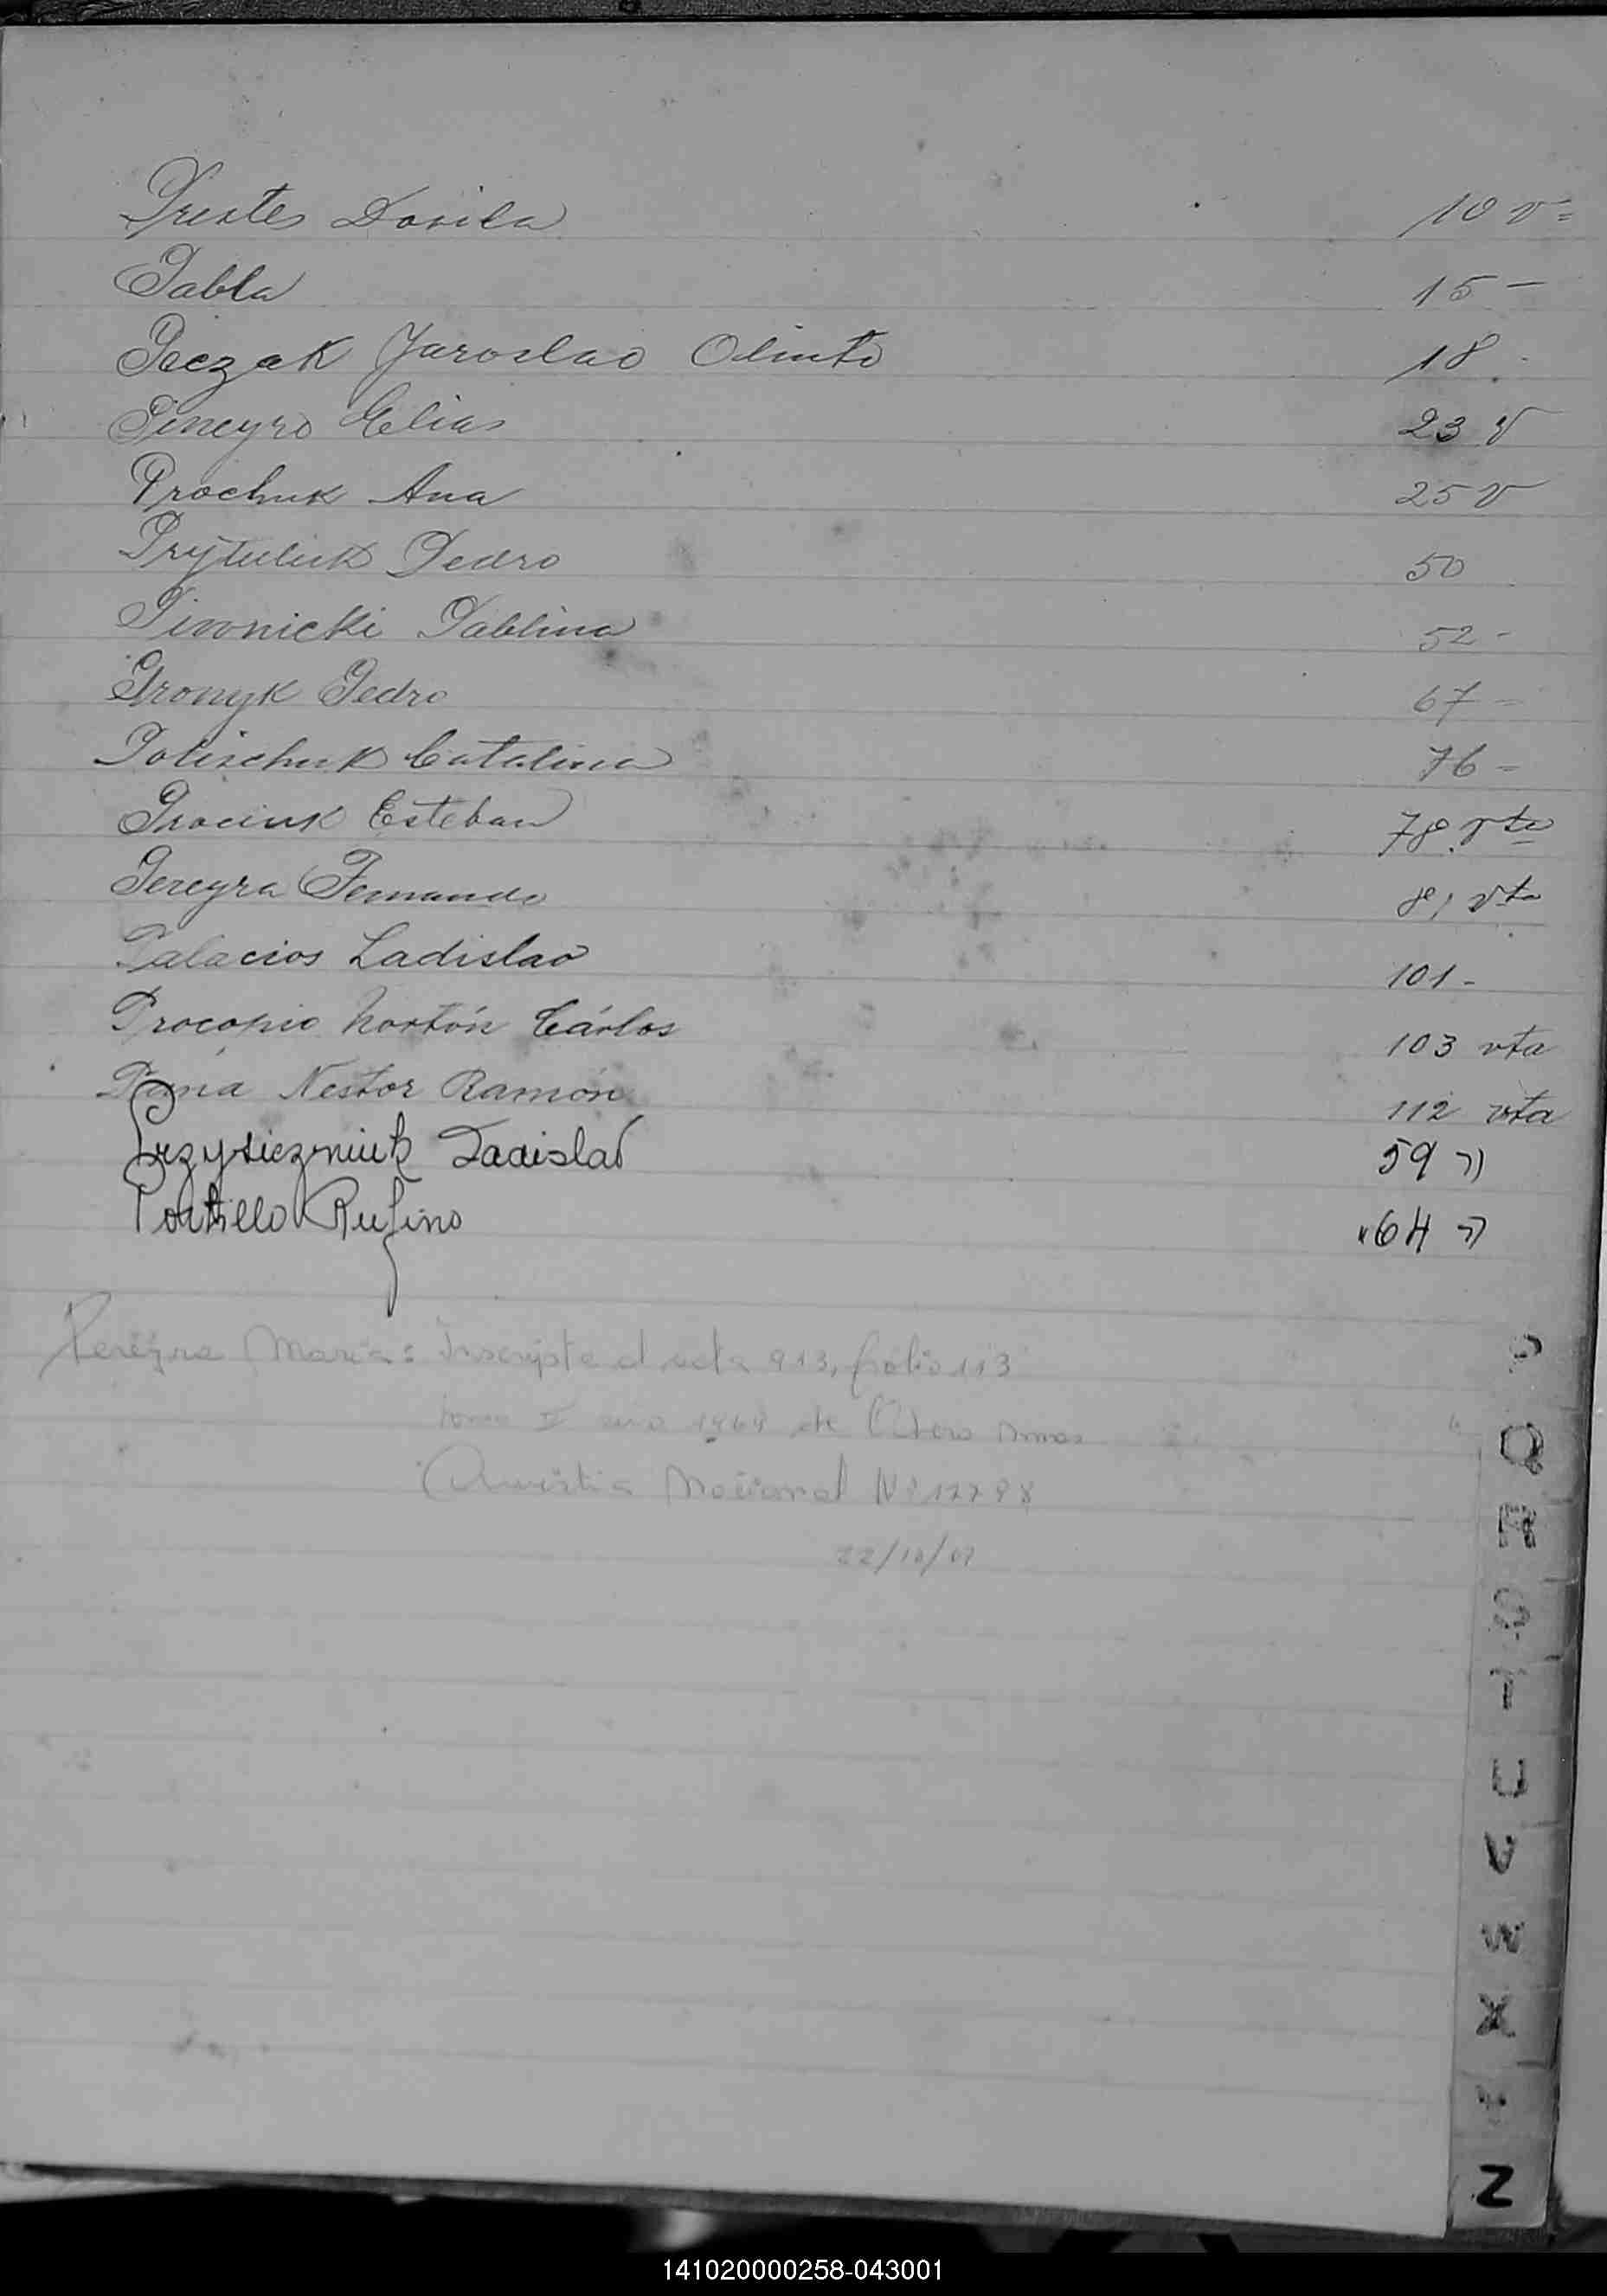 Prestes Dorila 10 v=
Pabla 15 -
Peczak Jaroslao Olinto 18 -
Pineyro Elias 23 v
Prochuk Ana 25 v
Prytuluk Pedro 50
Piwnicki Pablina 52 -
Pronyk Pedro 67 -
Polischuk Catalina 76 -
Prociuk Esteban 78 vta
Pereyra Fernando 81 vta
Palacios Ladislao 101 -
Procopio Nortón Cárlos 103 vta
Nestor Ramón 112 vta
Przysiezniuk Ladislao 59 "
Portillo Rufino "64 "
Pereyra Maria: Inscripta al acta 913, folio 113
tomo II año 1968 de
Amnistia Nacional Nº
22/10/
P
Q
R
S
T
U
V
W
X
Y
Z
141020000258-043001